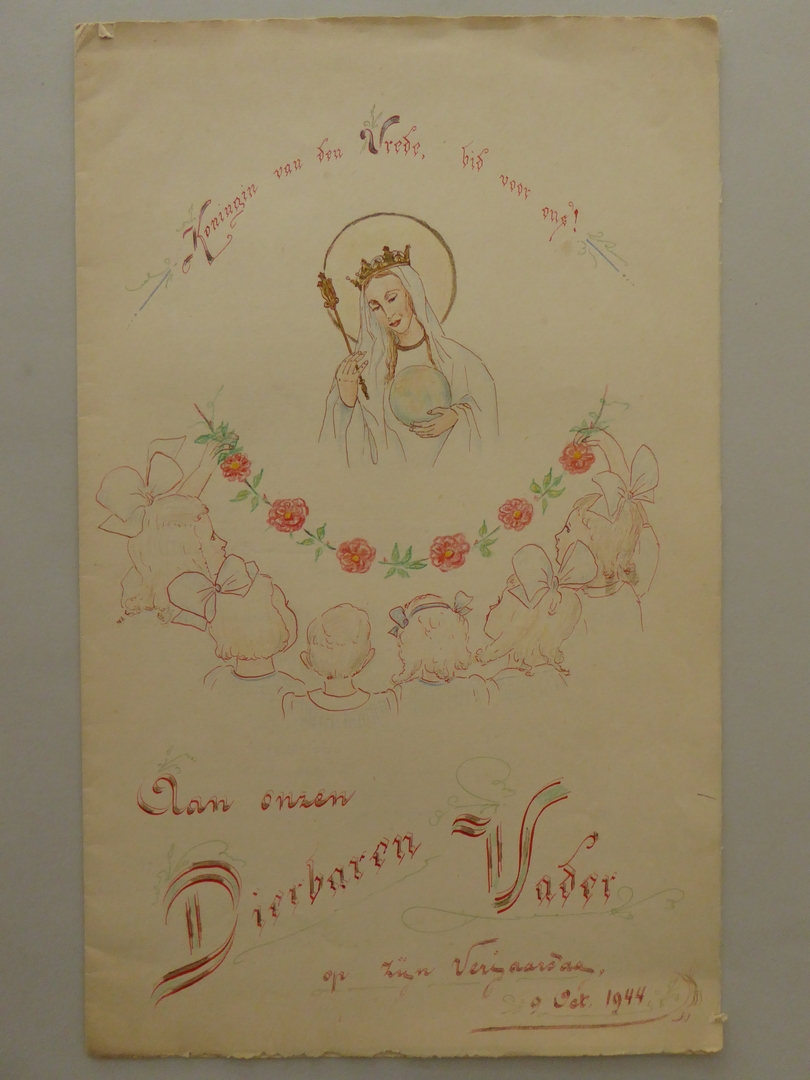 Koningin van den Vrede, bid voor ons!
Aan onzen
Dierbaren Vader
op zijn Verjaardag,
9 Oct. 1944